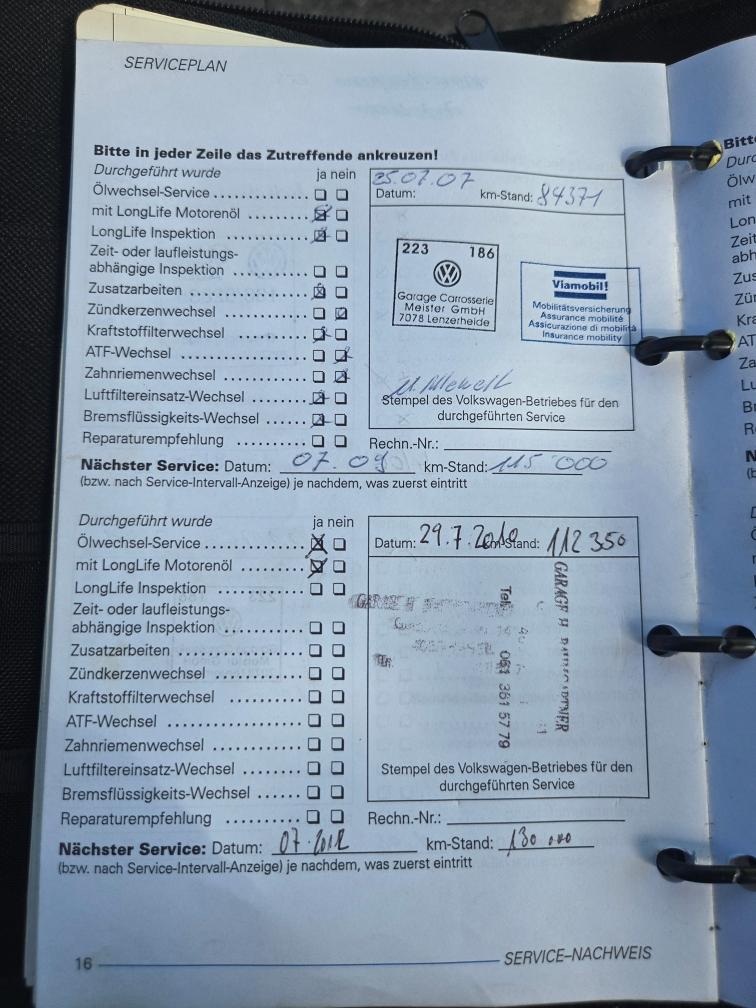 SERVICEPLAN
Bitte in jeder Zeile das Zutreffende ankreuzen!
Durchgeführt wurde ja nein
Ölwechsel-Service
mit LongLife Motorenöl
LongLife Inspektion
Zeit- oder laufleistungs-
abhängige Inspektion
Zusatzarbeiten
Zündkerzenwechsel
Kraftstoffilterwechsel
ATF-Wechsel
Zahnriemenwechsel
Luftfiltereinsatz-Wechsel
Bremsflüssigkeits-Wechsel
Reparaturempfehlung
25.07.07
Datum: km-Stand: 84371
223 186
Garage Carrosserie
Meister GmbH
7078 Lenzerheide
Viamobil!
Mobilitätsversicherung
Assurance mobilité
Assicurazione di mobilità
Insurance mobility
Stempel des Volkswagen-Betriebes für den
durchgeführten Service
Rechn.-Nr.:
Nächster Service: Datum: 07.09 km-Stand: 115'000
(bzw. nach Service-Intervall-Anzeige) je nachdem, was zuerst eintritt
Durchgeführt wurde ja nein
Ölwechsel-Service
mit LongLife Motorenöl
LongLife Inspektion
Zeit- oder laufleistungs-
abhängige Inspektion
Zusatzarbeiten
Zündkerzenwechsel
Kraftstoffilterwechsel
ATF-Wechsel
Zahnriemenwechsel
Luftfiltereinsatz-Wechsel
Bremsflüssigkeits-Wechsel
Reparaturempfehlung
Datum: 29.7.2010 km-Stand: 112 350
GARAGE H
Tel. 081 361 57 79
Stempel des Volkswagen-Betriebes für den
durchgeführten Service
Rechn.-Nr.:
Nächster Service: Datum: 07.2012 km-Stand: 130 000
(bzw. nach Service-Intervall-Anzeige) je nachdem, was zuerst eintritt
16 SERVICE–NACHWEIS